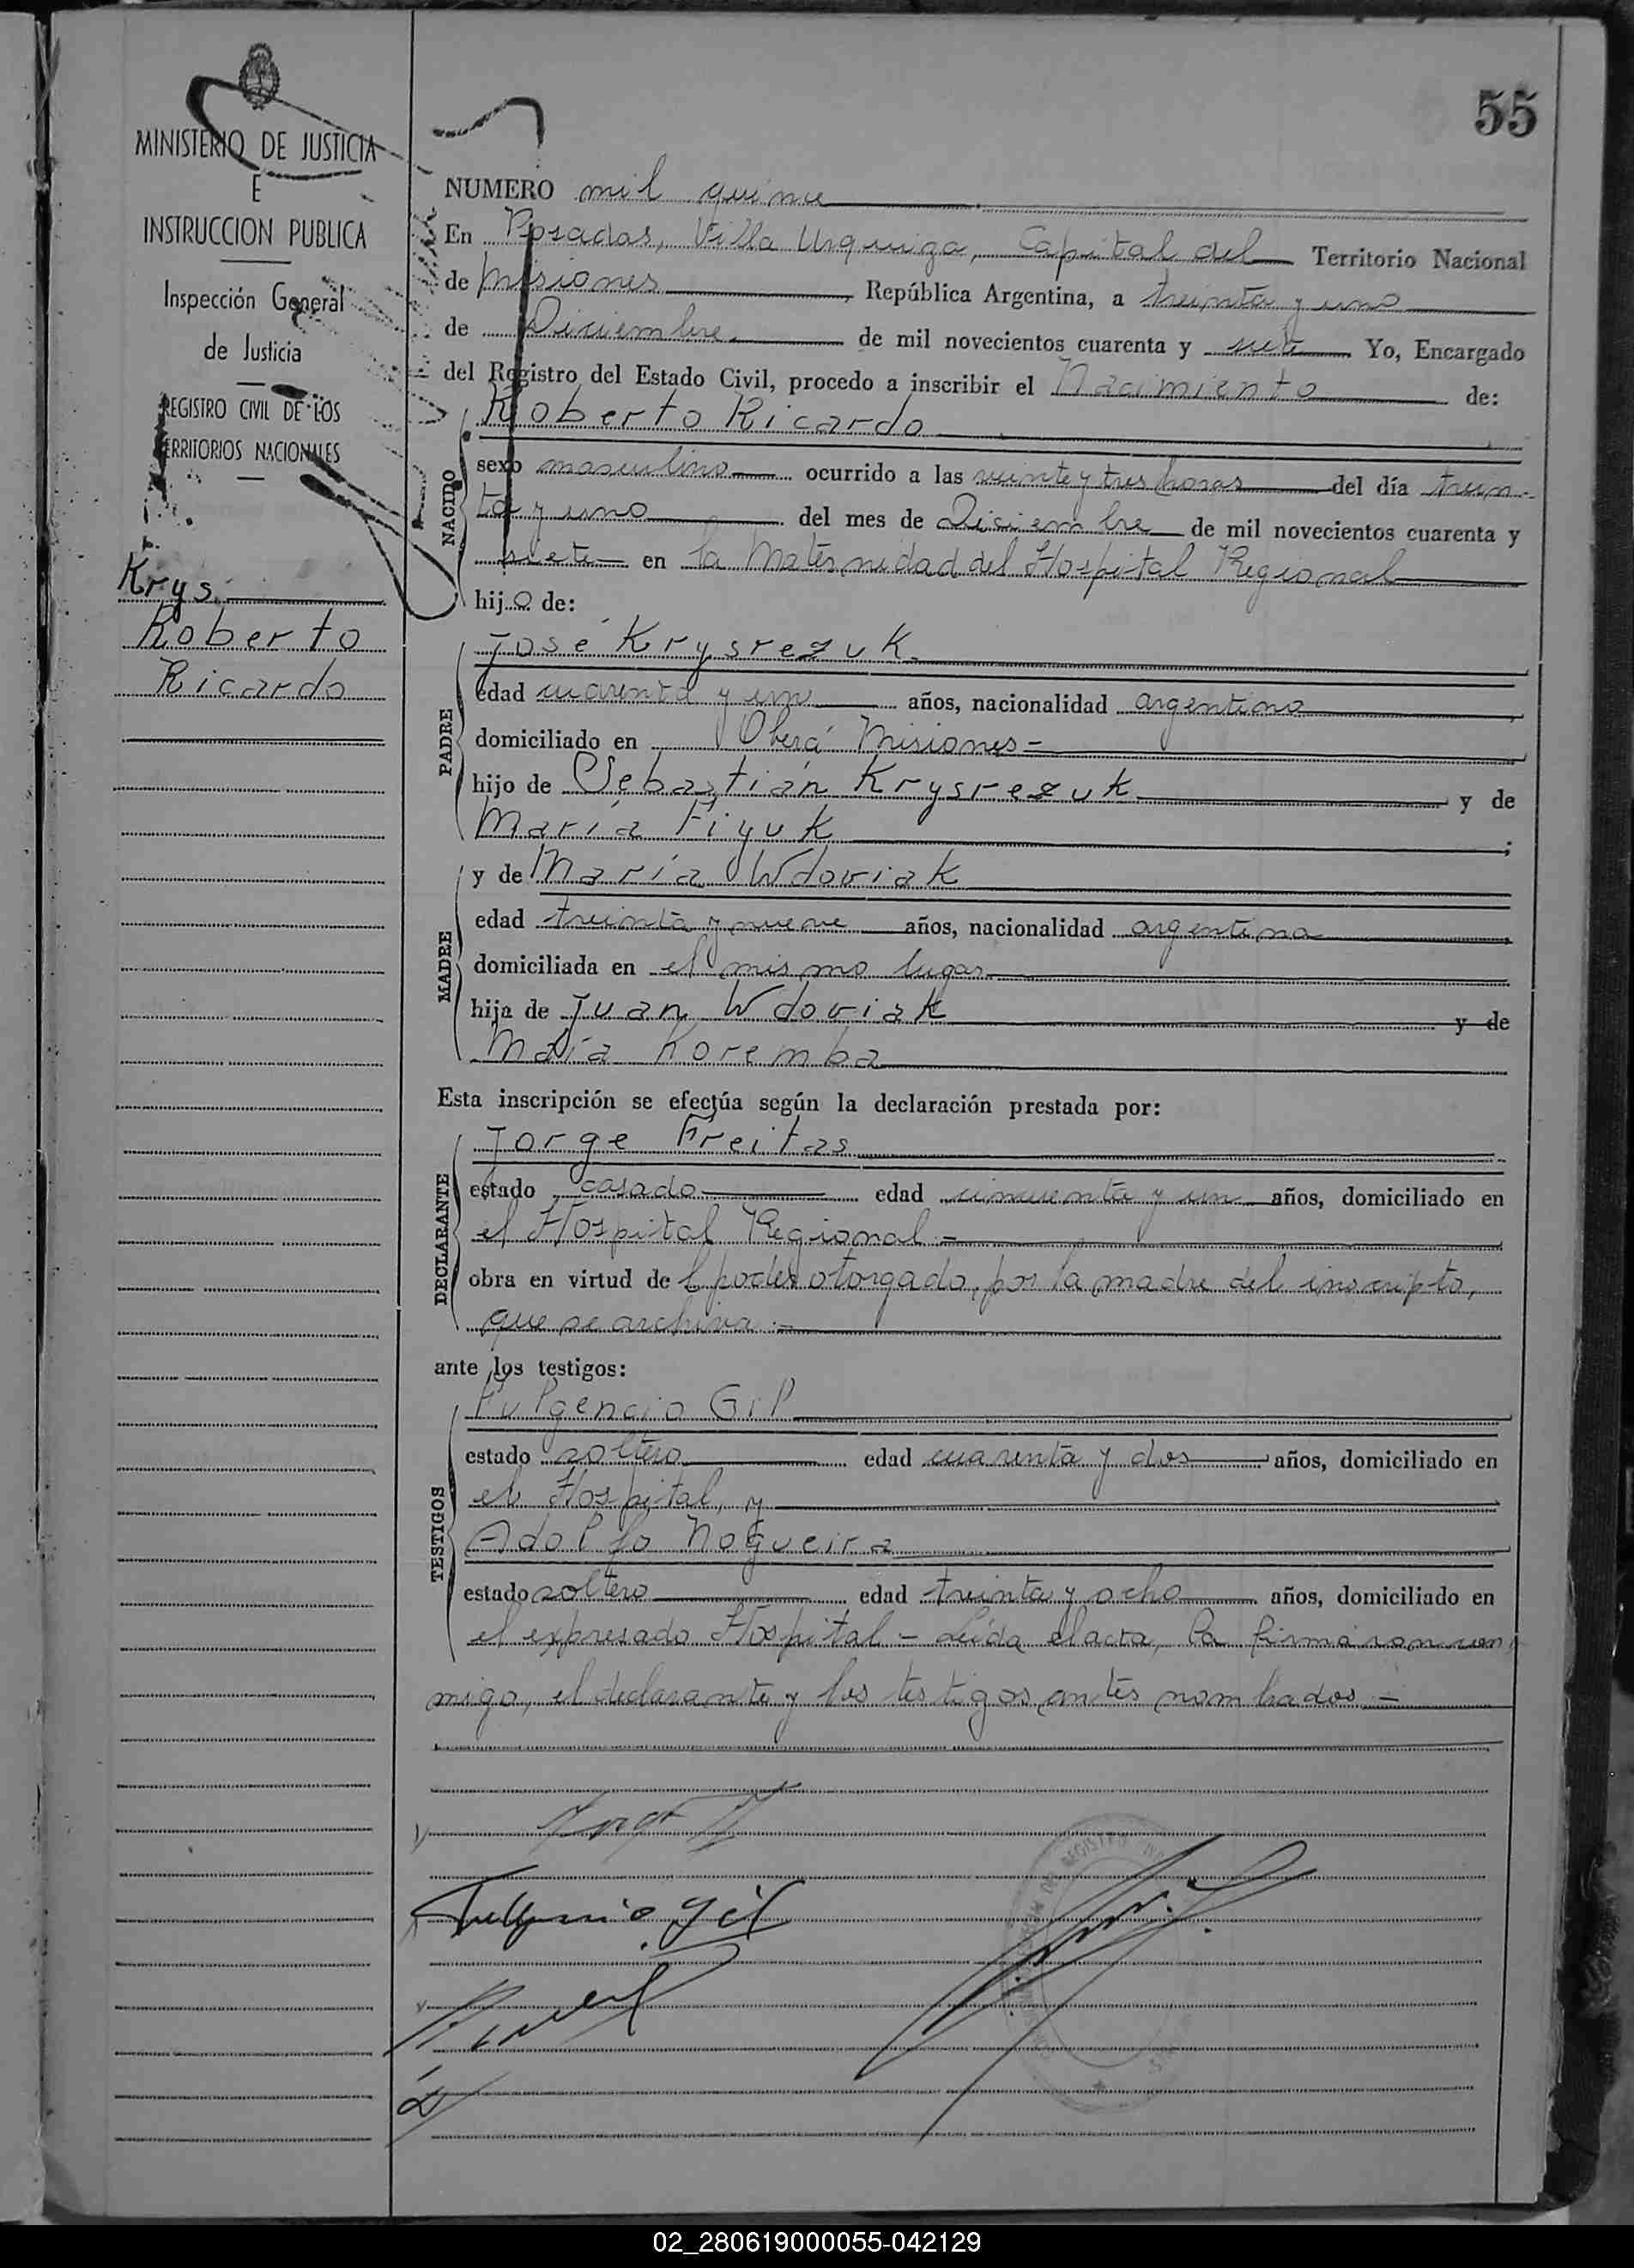 55
MINISTERIO DE JUSTICIA
E
INSTRUCCION PUBLICA
Inspección General
de Justicia
REGISTRO CIVIL DE LOS
TERRITORIOS NACIONALES
Krys.
Roberto
Ricardo
NUMERO mil quince
En Posadas, Villa Urquiza, Capital del Territorio Nacional
de Misiones, República Argentina, a treinta y uno
de Diciembre de mil novecientos cuarenta y siete Yo, Encargado
del Registro del Estado Civil, procedo a inscribir el Nacimiento de:
Roberto Ricardo
NACIDO
sexo masculino ocurrido a las veinte y tres horas del día trein-
ta y uno del mes de Diciembre de mil novecientos cuarenta y
siete en la Maternidad del Hospital Regional
hijo de:
José Krysrezuk
PADRE
edad cuarenta y un años, nacionalidad argentino
domiciliado en Oberá Misiones -
hijo de Sebastián Krysrezuk y de
María Fiyuk ;
y de María Wdoviak
MADRE
edad treinta y nueve años, nacionalidad argentina
domiciliada en el mismo lugar
hija de Juan Wdoviak y de
María Koremba
Esta inscripción se efectúa según la declaración prestada por:
Jorge Freitas
DECLARANTE
estado casado edad cincuenta y un años, domiciliado en
el Hospital Regional -
obra en virtud del poder otorgado, por la madre del inscripto,
que se archiva -
ante los testigos:
Fulgencio Gil
TESTIGOS
estado soltero edad cuarenta y dos años, domiciliado en
el Hospital, y
Adolfo Nogueira
estado soltero edad treinta y ocho años, domiciliado en
el expresado Hospital - Leída el acta, la firmaron con-
migo, el declarante y los testigos antes nombrados -
Fulgencio Gil
02_280619000055-042129